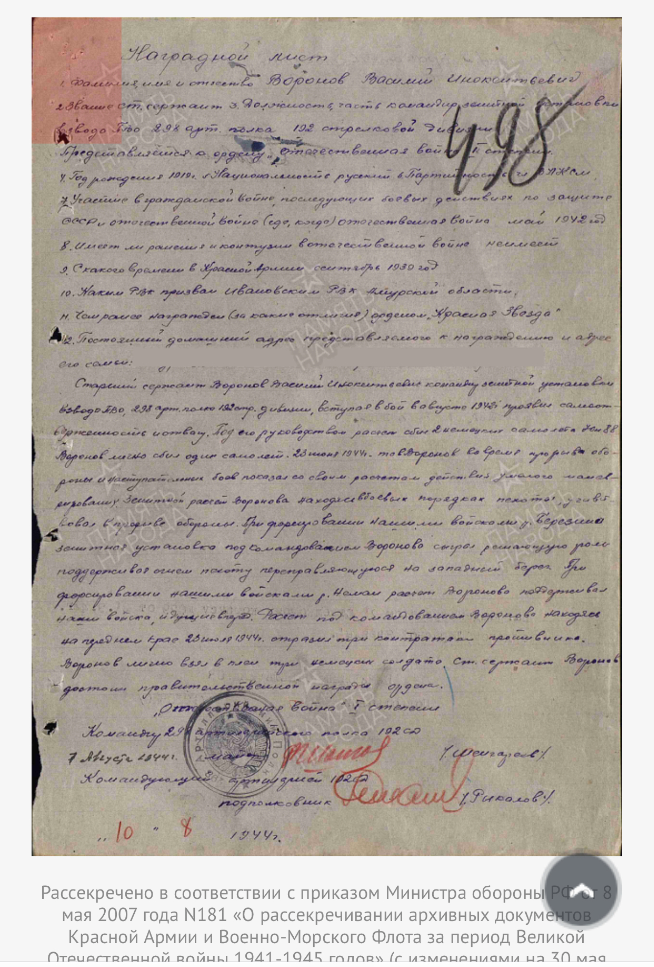 Наградной лист
1. Фамилия, имя и отчество Воронов Василий Инокентьевич
2. Звание ст. сержант 3. Должность, часть командир зенитной установки
взвода ПВО 298 арт. полка 192 стрелковой дивизии
Представляется к ордену "Отечественная война" степени
498
4. Год рождения 5. Национальность русский 6. Партийность
7. Участие в гражданской войне, последующих боевых действиях по защите
СССР и отечественной войне (где, когда) Отечественная война май 1942 год
8. Имеет ли ранения и контузии в отечественной войне неимеет
9. С какого времени в Красной Армии сентябрь 1939 год
10. Каким РВК призван Ивановским РВК Амурской области.
11. Чем ранее награжден (за какие отличия) орденом "Красная Звезда"
12. Постоянный домашний адрес представляемого к награждению и адрес
его семьи:
Старший сержант Воронов Василий Инокентьевич командир зенитной установки
взвода ПВО, 298 арт. полка 192 стр. дивизии, вступая в бой в августе проявил самоот-
верженность и отвагу. Под его руководством расчет сбил 2 немецких самолета
Воронов лично сбил один самолет. 23 июня 1944г. тов Воронов во время прорыва обо-
роны и наступательных боев показал со своим расчетом действия умелого манев-
рирования. Зенитный расчет Воронова находясь в боевых порядках пехоты
в прорыве обороны. При форсировании нашими войсками р. Березина
зенитная установка под командованием Воронова сыграла решающую роль
поддерживая огнем пехоту переправляющуюся на западный берег. При
форсировании нашими войсками р. Неман расчет Воронова поддерживал
наши войска идущие вперед. Расчет под командованием Воронова находясь
на переднем крае 23 июля 1944г. отразил три контратаки противника.
Воронов лично взял в плен три немецких солдата. Ст. сержант Воронов
достоин правительственной награды ордена.
"Отечественная война" степени
Командир 298 артиллерийского полка 192 сд
7 Августа 1944г. майор
Командующий артиллерией 192 сд
подполковник /Рыкалов/.
"10" 8 1944г.
ПАМЯТЬ НАРОДА
Рассекречено в соответствии с приказом Министра обороны РФ от 8
мая 2007 года N181 «О рассекречивании архивных документов
Красной Армии и Военно-Морского Флота за период Великой
Отечественной войны 1941-1945 годов» (с изменениями на 30 мая